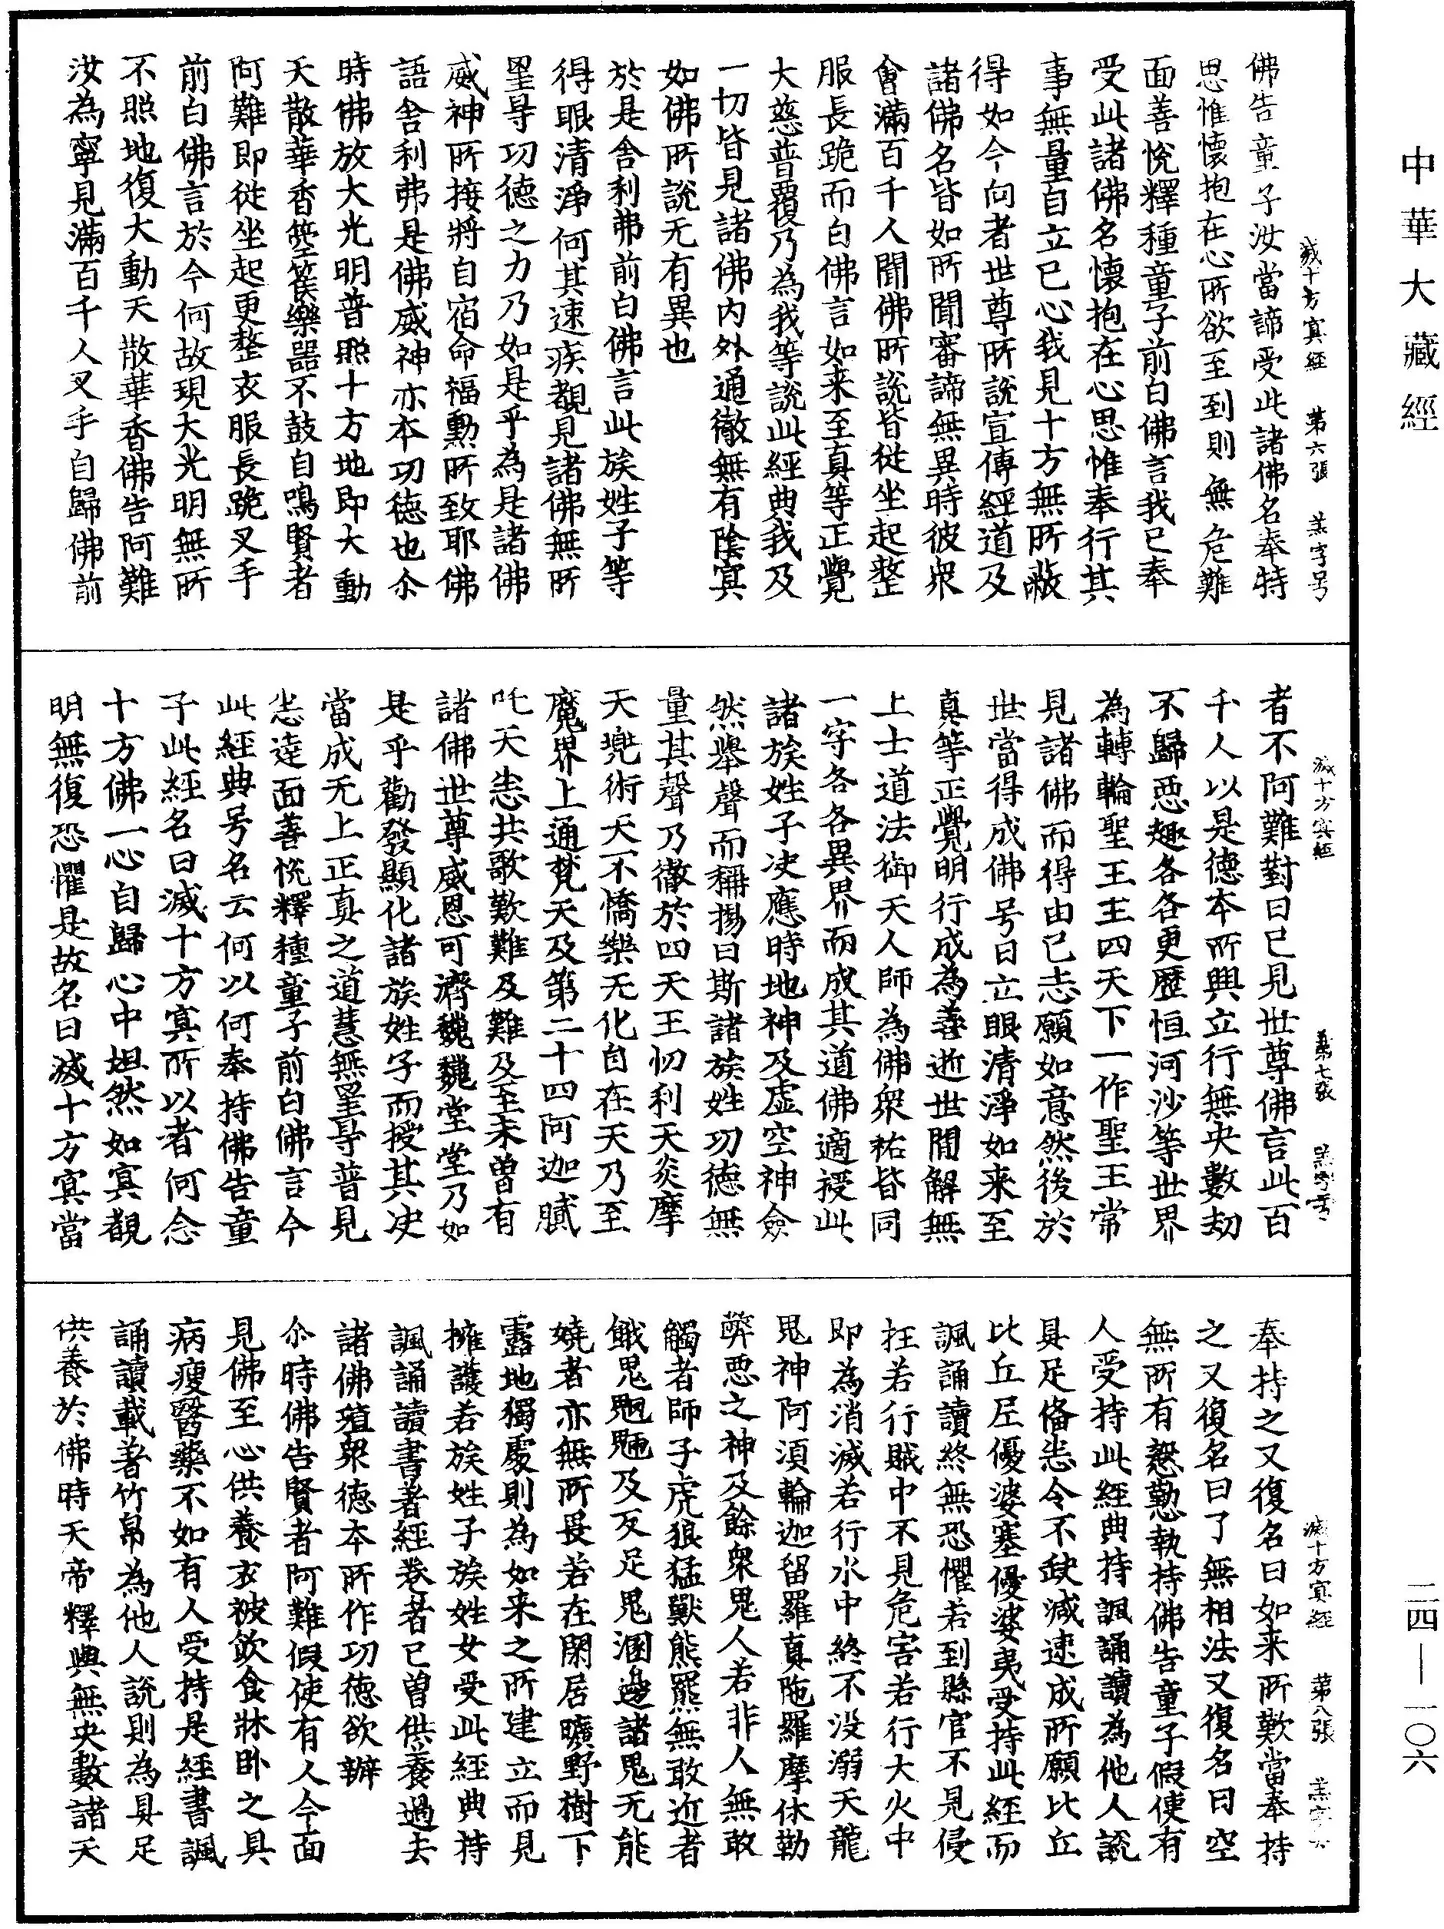 中華大藏經
二四—一〇六
滅十方冥經　第六張　羔字号
佛告童子汝當諦受此諸佛名奉持
思惟懷抱在心所欲至到則無危難
面善悅釋種童子前白佛言我已奉
受此諸佛名懷抱在心思惟奉行其
事無量自立已心我見十方無所蔽
得如今向者世尊所說宣傳經道及
諸佛名皆如所聞審諦無異時彼眾
會滿百千人聞佛所說皆從坐起整
服長跪而白佛言如来至真等正覺
大慈普覆乃為我等說此經典我及
一切皆見諸佛內外通徹無有陰冥
如佛所說无有異也
於是舍利弗前白佛言此族姓子等
得眼清淨何其速疾覩見諸佛無所
罣㝵功德之力乃如是乎為是諸佛
威神所接將自宿命福勳所致耶佛
語舍利弗是佛威神亦本功德也尒
時佛放大光明普照十方地即大動
天散華香箜篌樂器不鼓自鳴賢者
阿難即從坐起更整衣服長跪叉手
前白佛言於今何故現大光明無所
不照地復大動天散華香佛告阿難
汝為寧見滿百千人叉手自歸佛前
滅十方冥經　第七張　羔字号
者不阿難對曰已見世尊佛言此百
千人以是德本所興立行無央數劫
不歸惡趣各各更歷恒河沙等世界
為轉輪聖王主四天下一作聖王常
見諸佛而得由已志願如意然後於
世當得成佛号曰立眼清淨如来至
真等正覺明行成為善逝世間解無
上士道法御天人師為佛眾祐皆同
一字各各異界而成其道佛適授此
諸族姓子决應時地神及虛空神僉
然舉聲而稱揚曰斯諸族姓功德無
量其聲乃徹於四天王忉利天炎摩
天兜術天不憍樂无化自在天乃至
魔界上通梵天及第二十四阿迦膩
吒天悉共歌歎難及難及至未曾有
諸佛世尊威恩可濟巍巍堂堂乃如
是乎勸發顯化諸族姓子而授其决
當成无上正真之道慧無罣㝵普見
悉達面善悅釋種童子前白佛言今
此經典号名云何以何奉持佛告童
子此經名曰滅十方冥所以者何念
十方佛一心自歸心中坦然如冥覩
明無復恐懼是故名曰滅十方冥當
滅十方冥經　第八張　羔字号
奉持之又復名曰如来所歎當奉持
之又復名曰了無相法又復名曰空
無所有慇懃執持佛告童子假使有
人受持此經典持諷誦讀為他人說
具足俻悉令不缺減速成所願比丘
比丘尼優婆塞優婆夷受持此經而
諷誦讀終無恐懼若到縣官不見侵
抂若行賊中不見危害若行大火中
即為消滅若行水中終不没溺天龍
鬼神阿須輪迦留羅真陁羅摩休勒
弊惡之神及餘眾鬼人若非人無敢
觸者師子虎狼猛獸熊羆無敢近者
餓鬼魍魎及反足鬼溷邊諸鬼无能
嬈者亦無所畏若在閑居曠野樹下
露地獨處則為如来之所建立而見
擁護若族姓子族姓女受此經典持
諷誦讀書著經卷者已曾供養過去
諸佛殖眾德本所作功德欲辦
尒時佛告賢者阿難假使有人今面
見佛至心供養衣被飲食牀卧之具
病瘦醫藥不如有人受持是經書諷
誦讀載著竹帛為他人說則為具足
供養於佛時天帝釋與無央數諸天